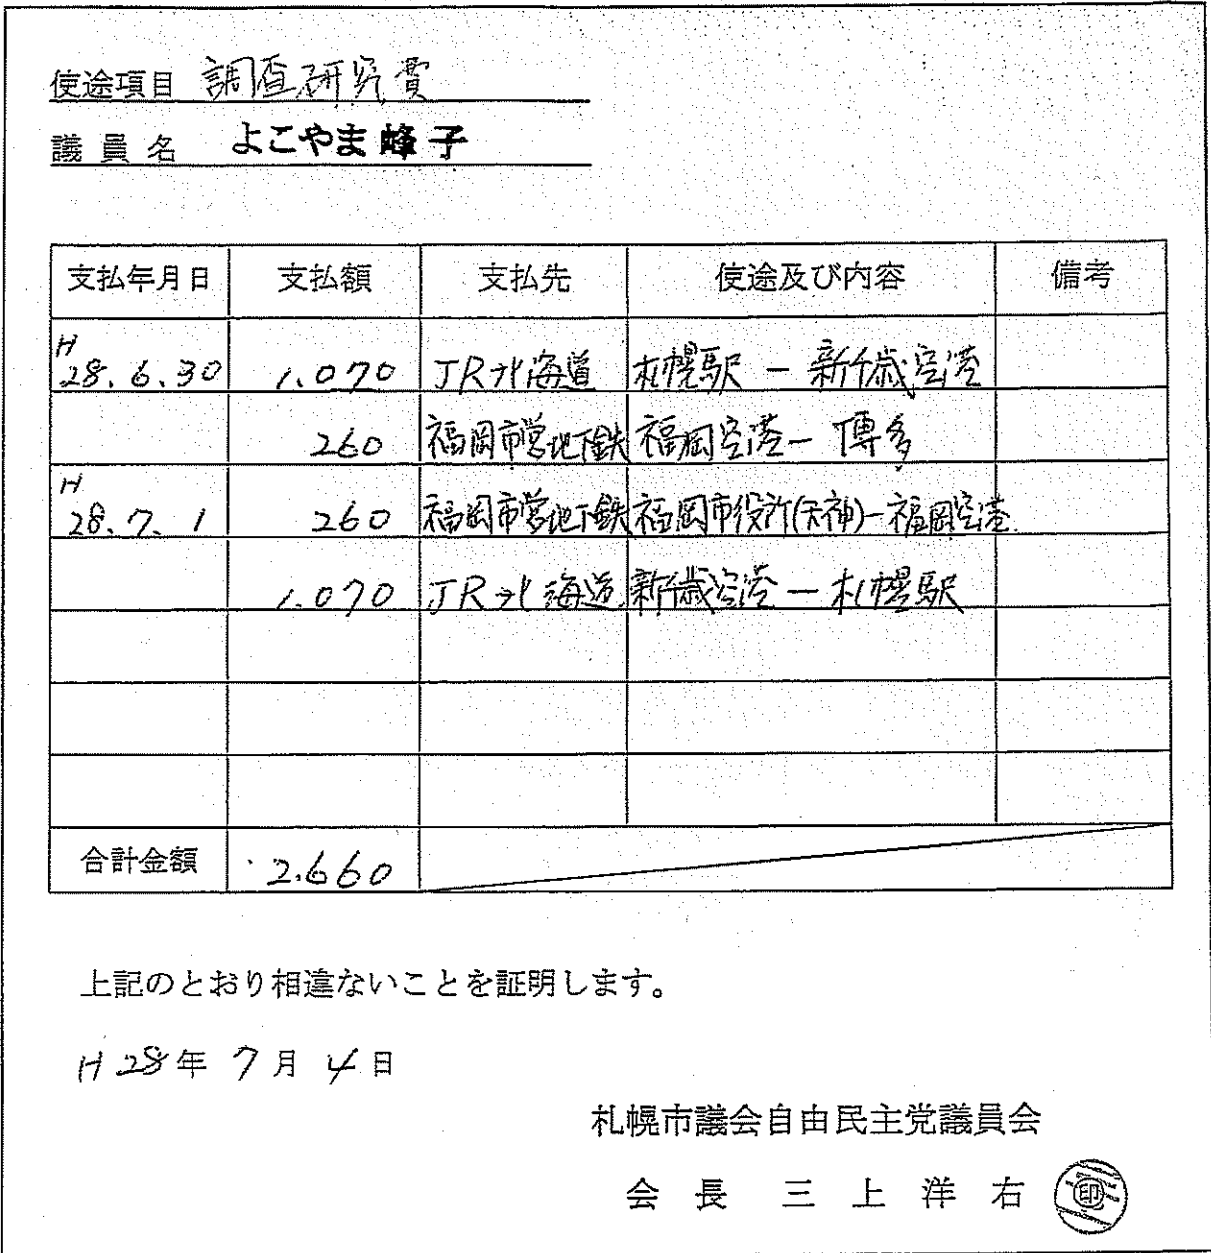 使途項目 調査研究費
議員名 よこやま峰子
支払年月日 支払額 支払先 使途及び内容 備考
H
28.6.30 1.070 JR北海道 札幌駅 - 新千歳空港
260 福岡市営地下鉄 福岡空港 - 博多
H
28.7.1 260 福岡市営地下鉄 福岡市役所(天神) - 福岡空港
1.070 JR北海道 新千歳空港 - 札幌駅
合計金額 2.660
上記のとおり相違ないことを証明します。
H28年 7月 4日
札幌市議会自由民主党議員会
会長 三上洋右 印